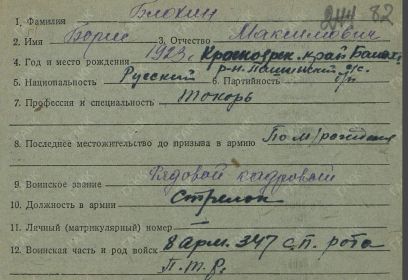 Блохин
1. Фамилия 244 82
2. Имя Борис 3. Отчество Максимович
4. Год и место рождения 1923, Красноярск. край Балахт.
р-н
5. Национальность Русский 6. Партийность б/п
7. Профессия и специальность токарь
8. Последнее местожительство до призыва в армию По м/рождения
9. Воинское звание Рядовой кадровый
10. Должность в армии Стрелок
11. Личный (матрикулярный) номер —
12. Воинская часть и род войск 8 арм. 347 с.п. рота
П.т.р.